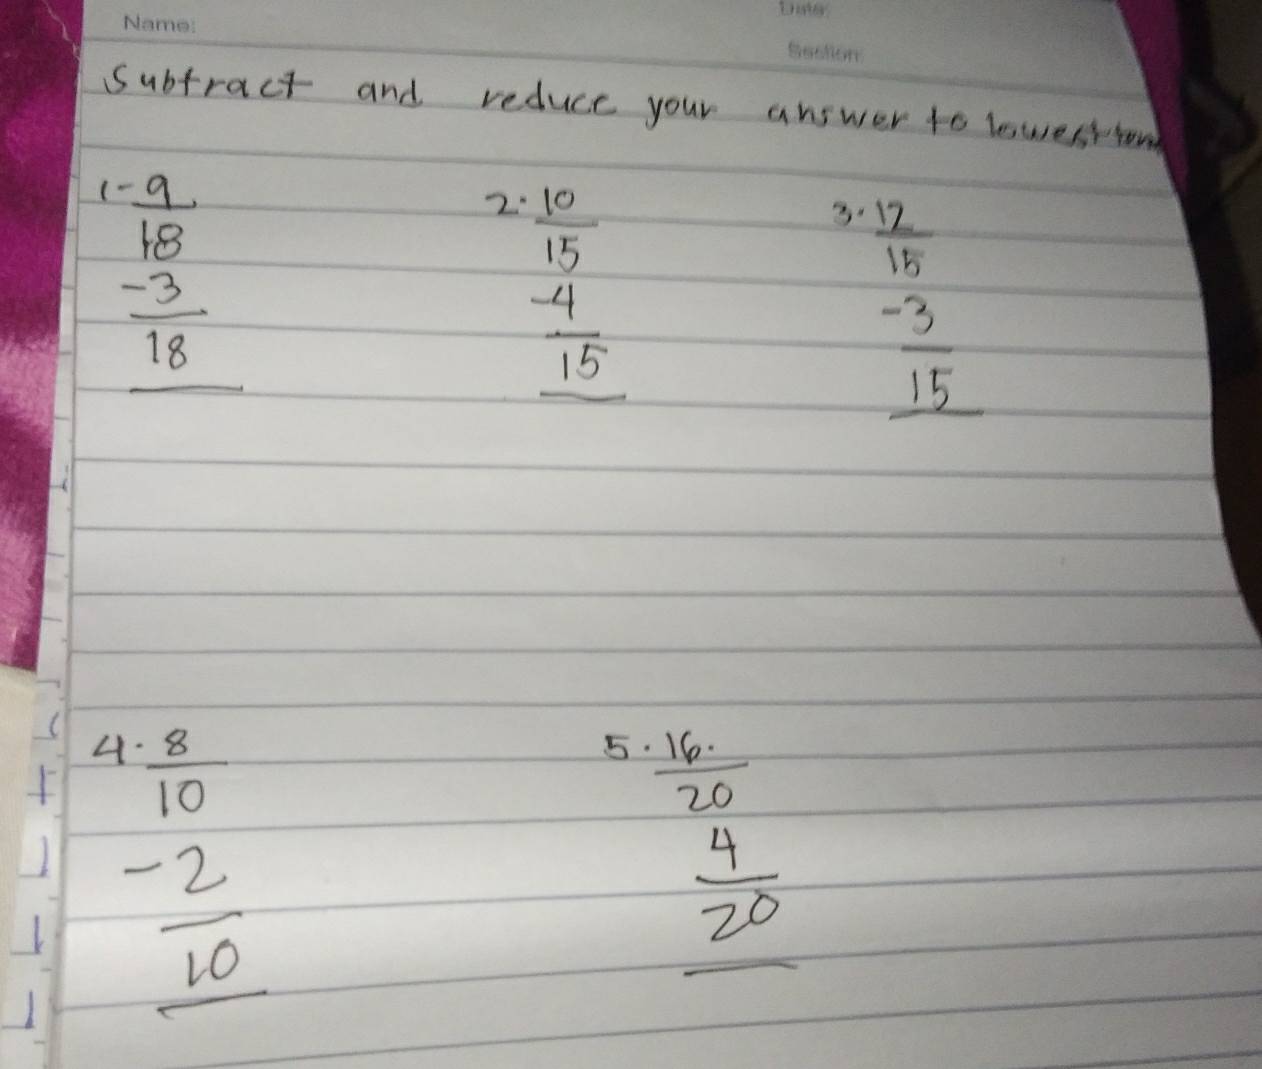 Name:
Date:
Section:
Subtract and reduce your answer to lowest term
1- 9 2. 10 3. 12
18 15 15
-3 -4 -3
18 15 15
4. 8 5. 16.
10 20
-2 4
10 20